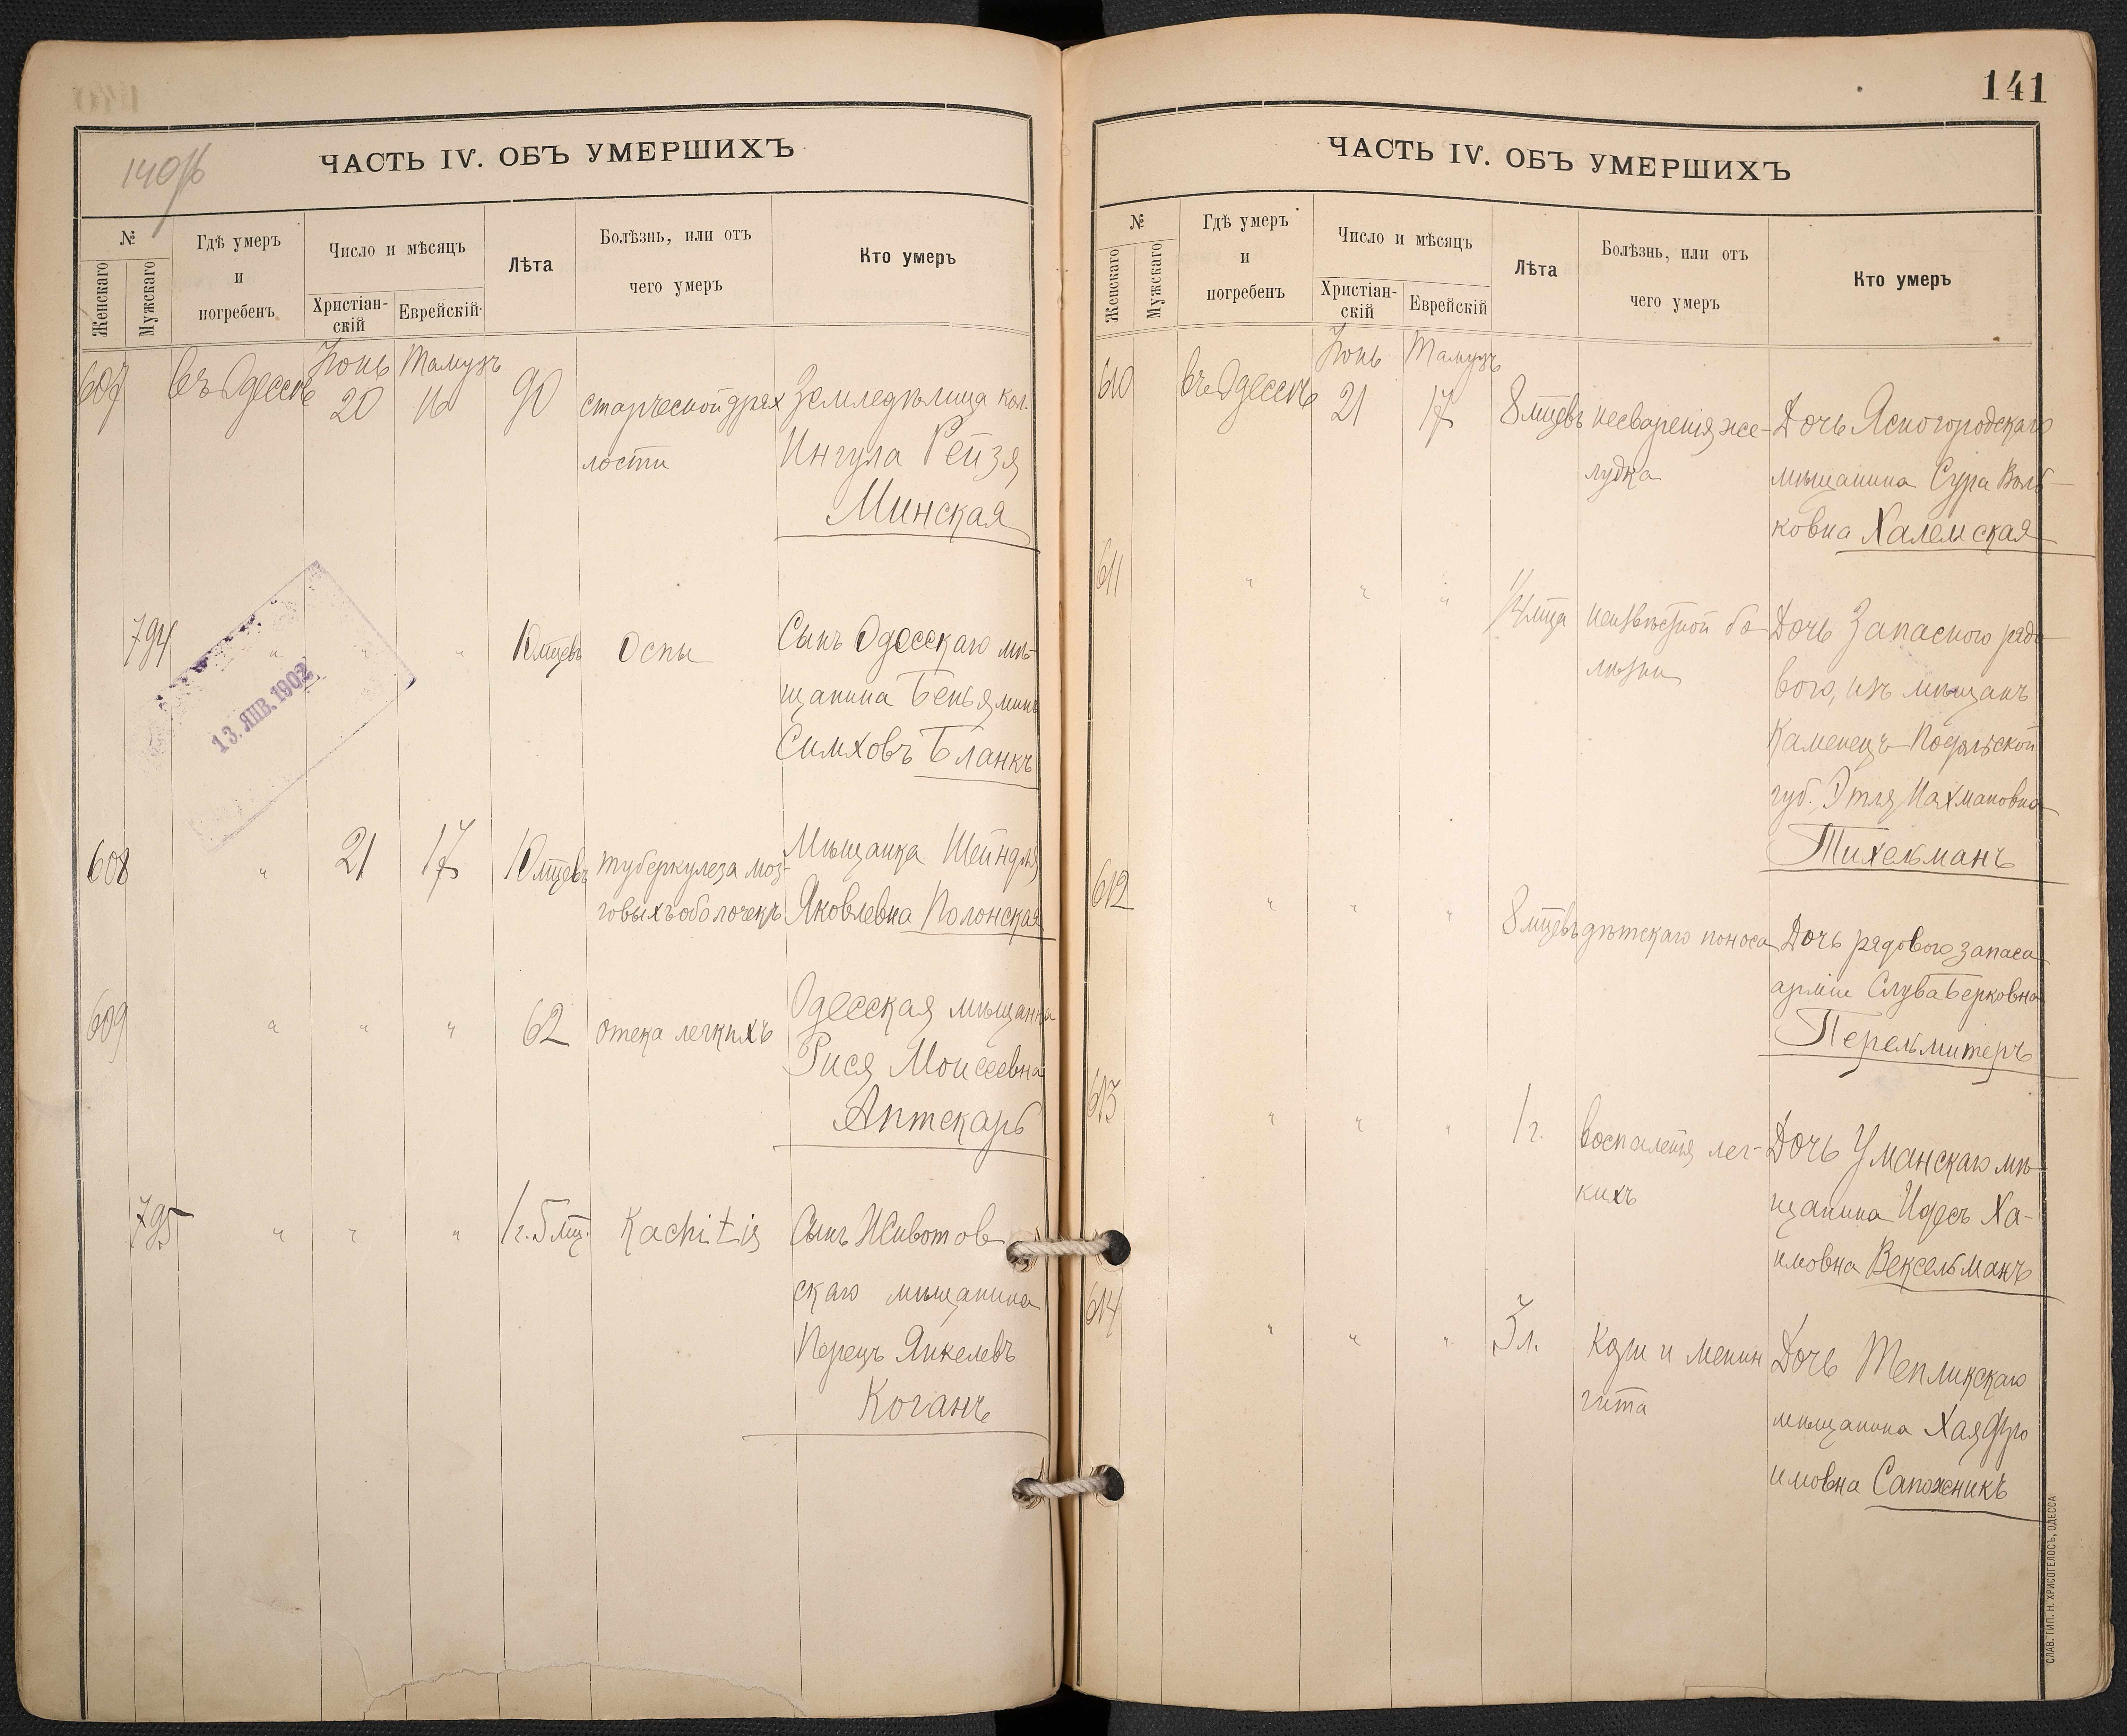 141
140 об
ЧАСТЬ IV. ОБЪ УМЕРШИХЪ
№
Женскаго
Мужскаго
Гдѣ умеръ
и
погребенъ
Число и мѣсяцъ
Христіан-
скій
Еврейскій
Лѣта
Болѣзнь, или отъ
чего умеръ
Кто умеръ
607 въ Одессѣ Іюнь 20 Тамузъ 16 90 старческой дрях
лости
Земледѣлица кол.
Ингула Рейзя
Минская
794 " " " 10 мцевъ Оспы
Сынъ Одесскаго мѣ-
щанина Беньяминъ
Симховъ Бланкъ
13. ЯНВ. 1902
608 " 21 17 10 мцевъ туберкулеза моз-
говыхъ оболочекъ
Мѣщанка Шейндля
Яковлевна Полонская
609 " " " 62 отека легкихъ
Одесская мѣщанка
Рися Моисеевна
Аптекарь
795 " " " 1 г. 5 мц. Rachitis
Сынъ Животов
скаго мѣщанина
Перецъ Янкелевъ
Коганъ
ЧАСТЬ IV. ОБЪ УМЕРШИХЪ
№
Женскаго
Мужскаго
Гдѣ умеръ
и
погребенъ
Число и мѣсяцъ
Христіан-
скій
Еврейскій
Лѣта
Болѣзнь, или отъ
чего умеръ
Кто умеръ
610 въ Одессѣ Іюнь 21 Тамузъ 17 8 мцевъ несваренія же-
лудка
Дочь Ясногородскаго
мѣщанина Сура Воль-
ковна Халемская
611 " " " 1/4 мца неизвѣстной бо
лѣзни
Дочь Запасного рядо
вого, изъ мѣщанъ
Каменецъ-Подольской
губ. Этля Нахмановна
Тихельманъ
612 " " " 8 мцевъ дѣтскаго поноса
Дочь рядового запаса
арміи Слува Берковна
Перельмитеръ
613 " " " 1 г. воспаленія лег-
кихъ
Дочь Уманскаго мѣ-
щанина Идесъ Ха-
имовна Вексельманъ
614 " " " 3 л. Кори и менин
гита
Дочь Тепликскаго
мѣщанина Хая
имовна Сапожникъ
СЛАВ. ТИП. Н. ХРИСОГЕЛОСЪ, ОДЕССА